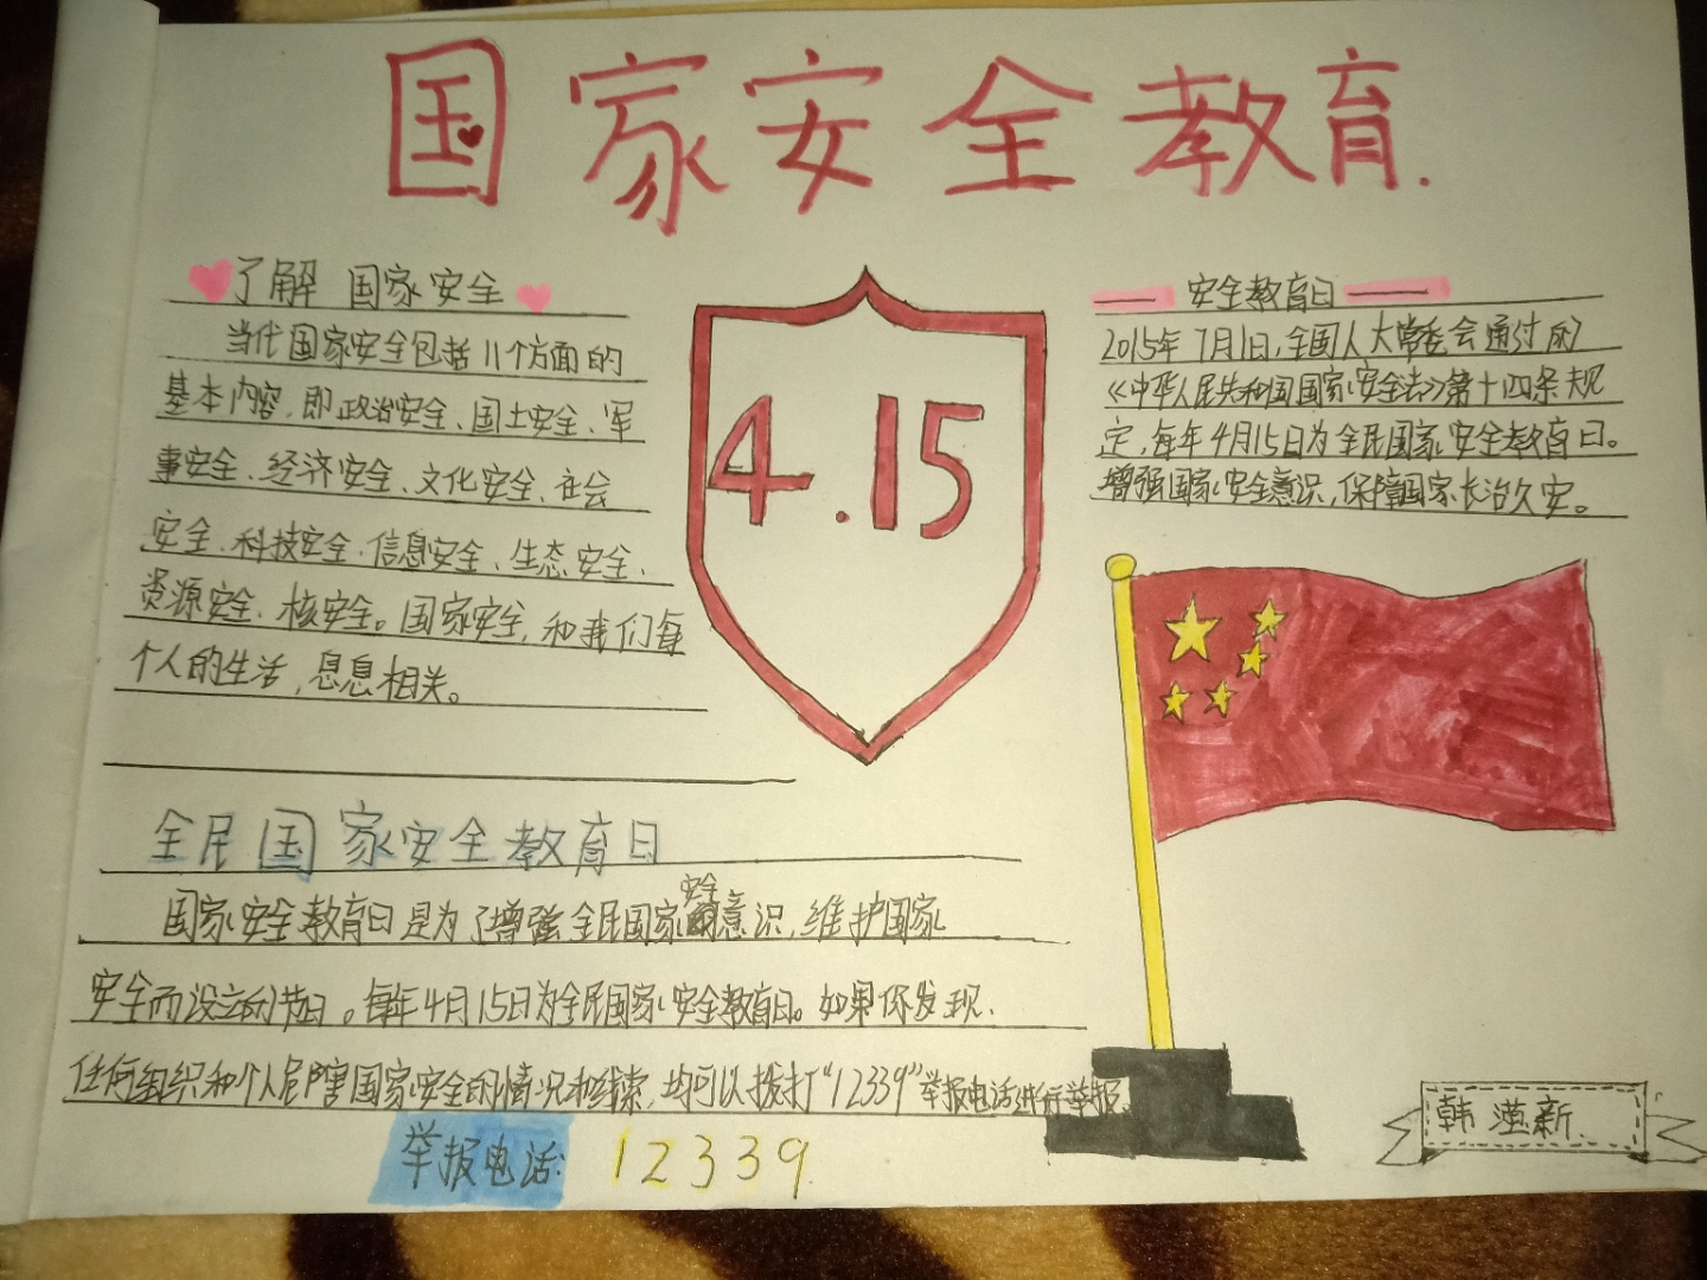 国家安全教育.
了解 国家安全
当代国家安全包括11个方面的
基本内容,即政治安全、国土安全、军
事安全、经济安全、文化安全、社会
安全、科技安全、信息安全、生态安全、
资源安全、核安全。国家安全,和我们每
个人的生活,息息相关。
4.15
安全教育日
2015年7月1日,全国人大常委会通过的
《中华人民共和国国家安全法》第十四条规
定,每年4月15日为全民国家安全教育日。
增强国家安全意识,保障国家长治久安。
全民国家安全教育日
国家安全教育日是为了增强全民国家安全意识,维护国家
安全而设立的节日。每年4月15日为全民国家安全教育日。如果你发现,
任何组织和个人危障害国家安全的情况和线索,均可以拨打“12339”举报电话进行举报。
举报电话: 12339.
韩 新.